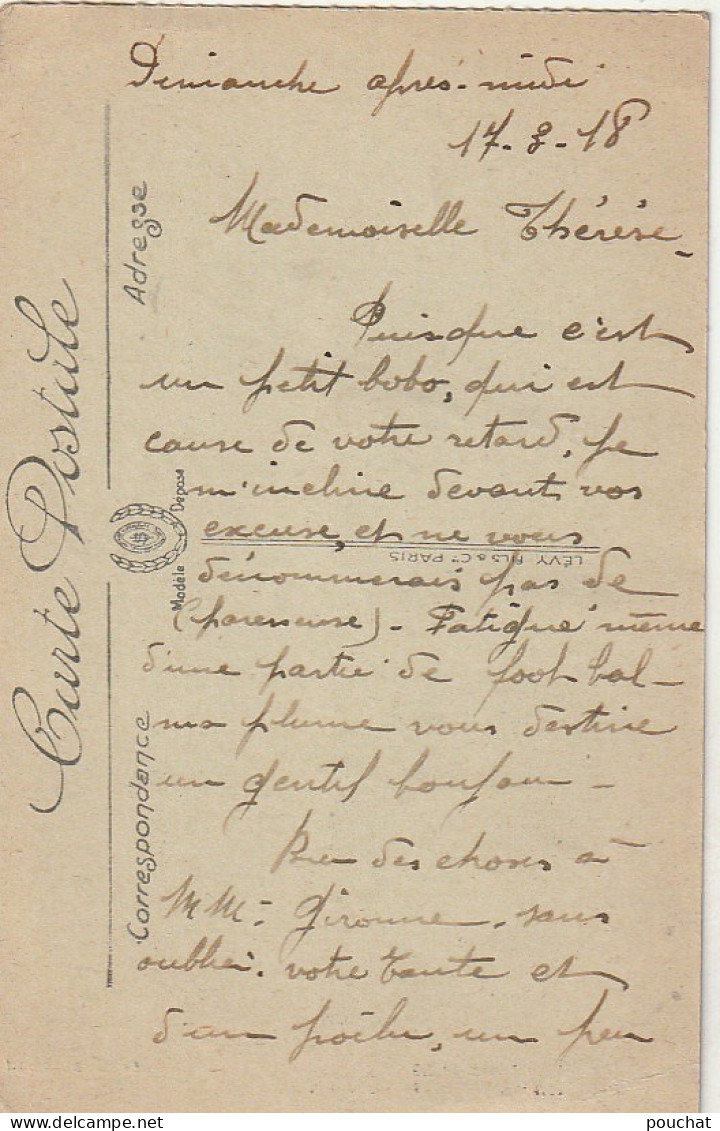 Dimanche après-midi
17-3-18
Mademoiselle Thérèse -
Puisque c'est
un petit bobo, qui est
cause de votre retard, je
m'incline devant vos
excuse, et ne vous
dénommerais pas de
(paresseuse) - Fatigué même
d'une partie de foot bal -
ma plume vous destine
un gentil bonjour -
Bien des choses à
M M - Gironne, sans
oublier votre tante et
d'un poilu, un peu
Carte Postale
Adresse
Correspondance
Modèle Déposé
LÉVY FILS & Cie PARIS
www.delcampe.net
pouchat